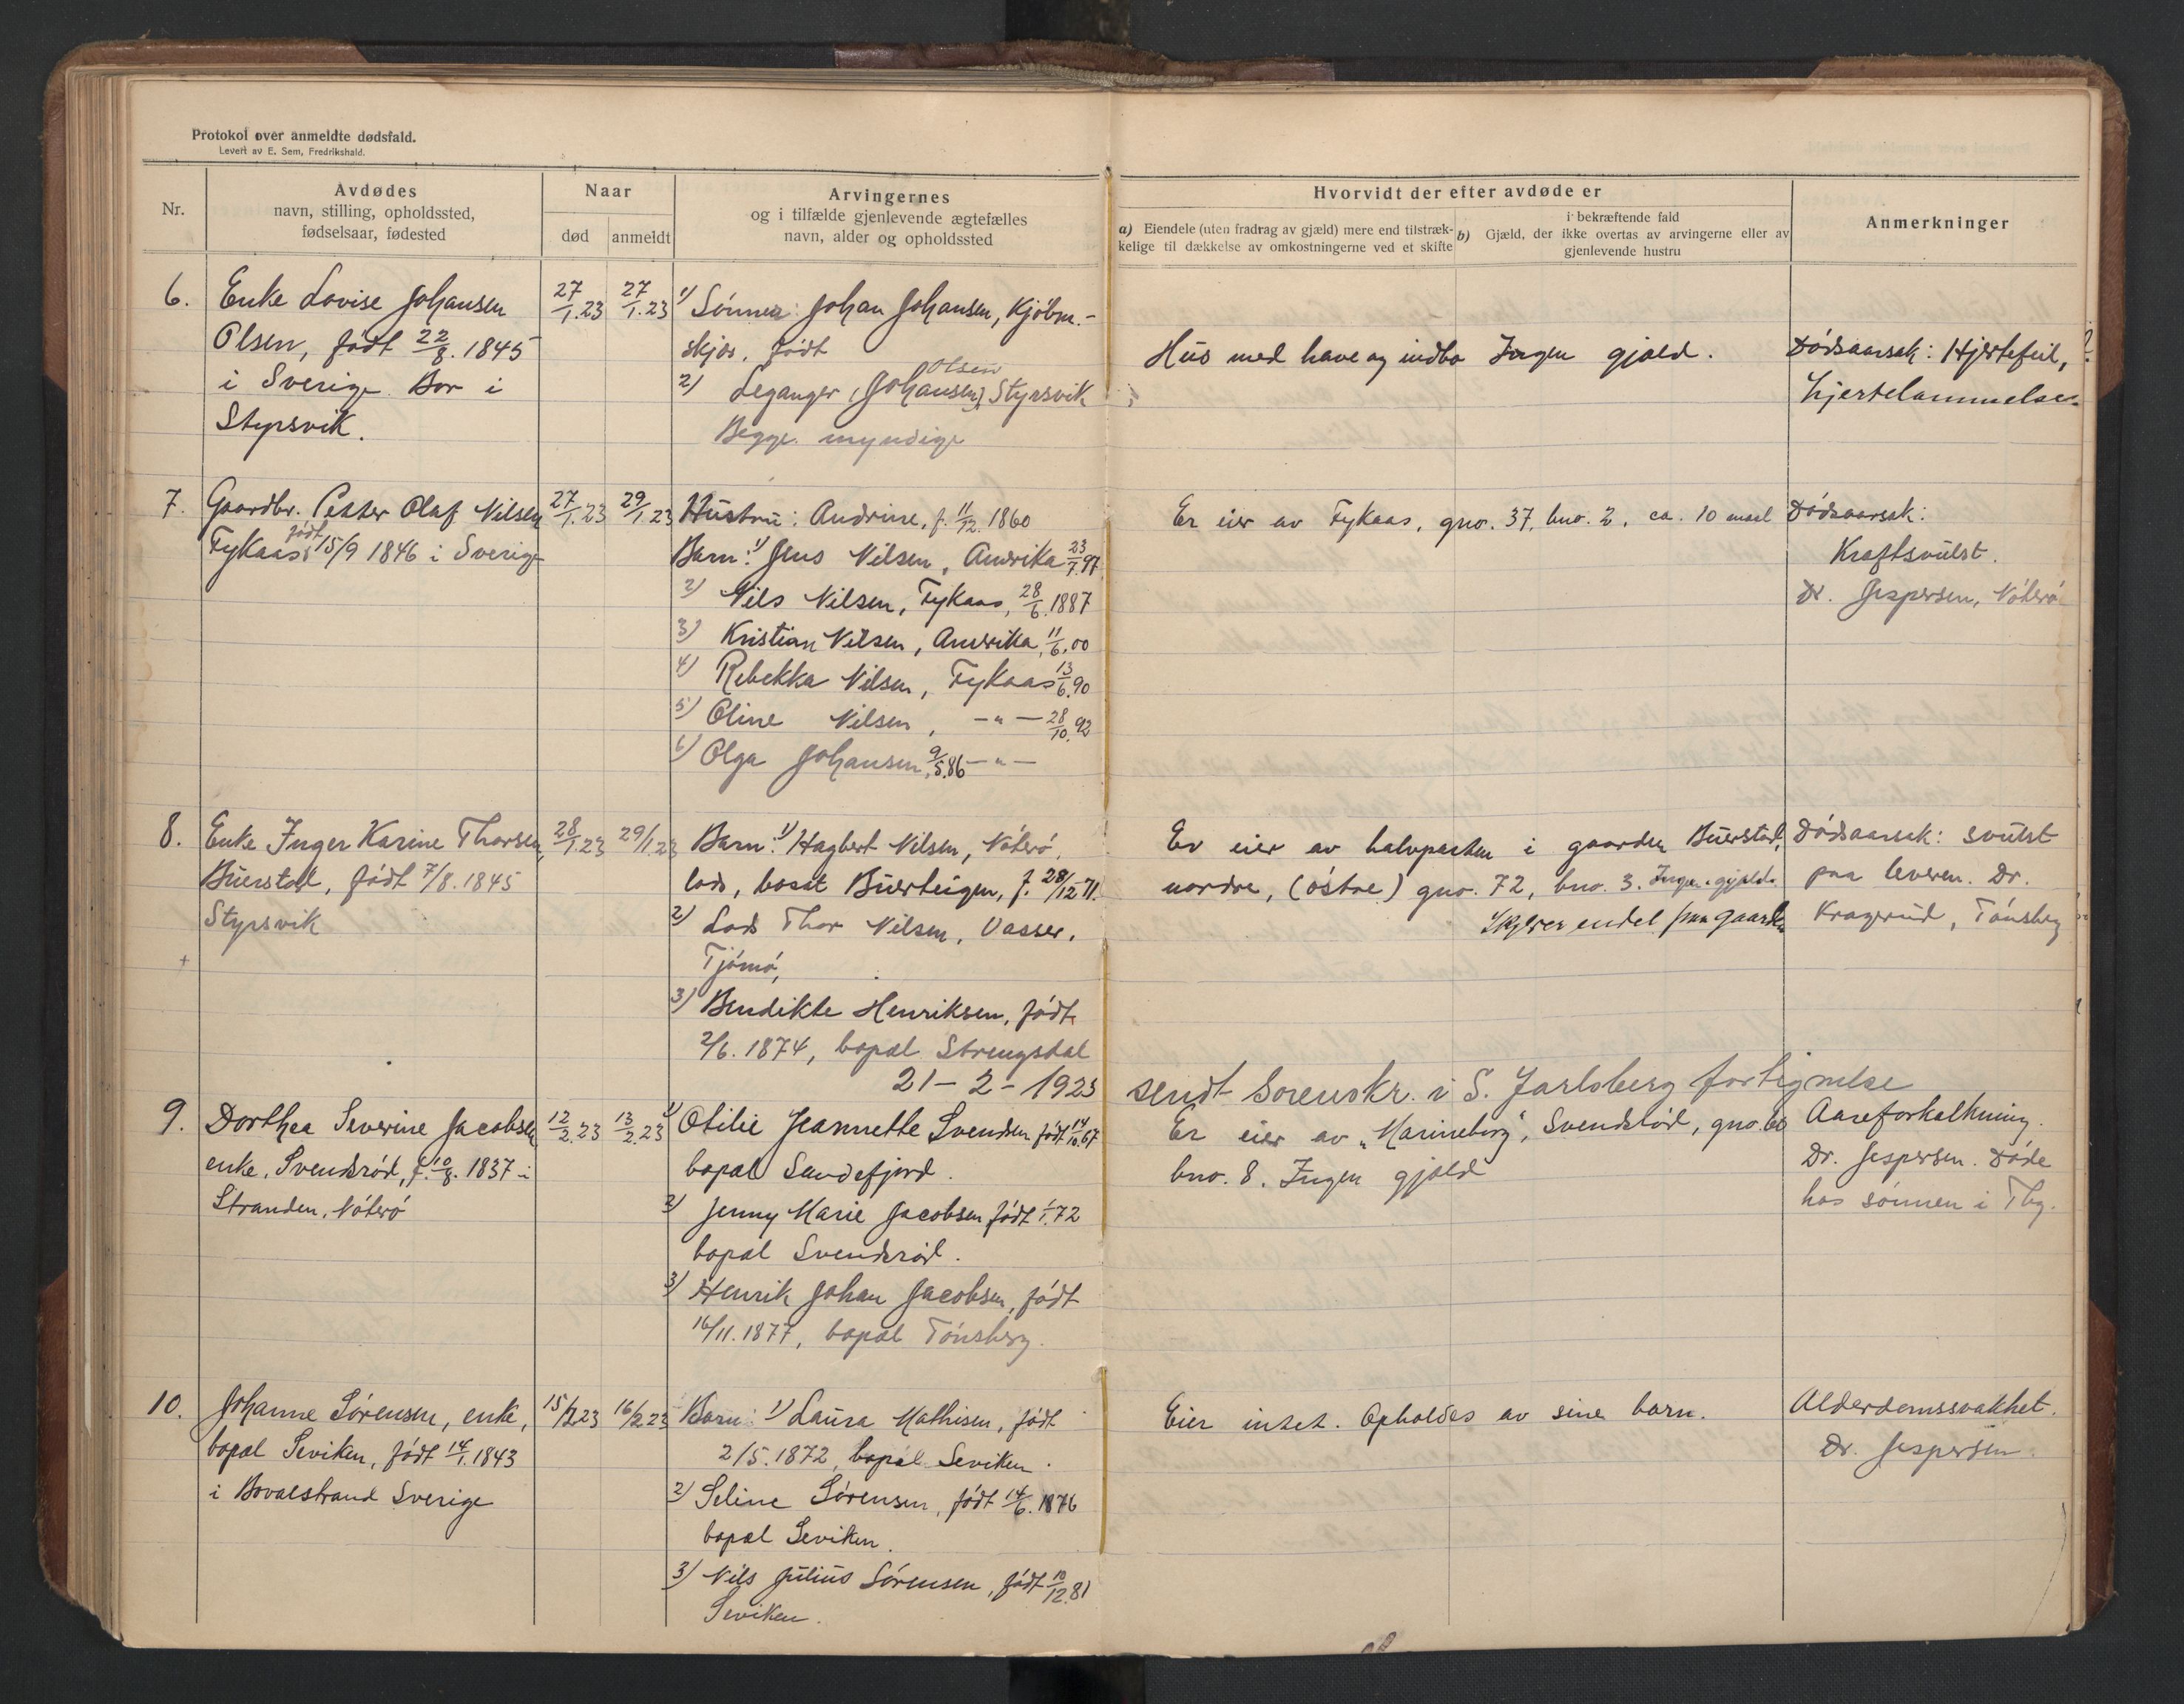 Protokol over anmeldte dødsfald.
Levert av E. Sem, Fredrikshald.
Nr.
Avdødes
navn, stilling, opholdssted,
fødselsaar, fødested
Naar
død
anmeldt
Arvingernes
og i tilfælde gjenlevende ægtefælles
navn, alder og opholdssted
Hvorvidt der efter avdøde er
a) Eiendele (uten fradrag av gjæld) mere end tilstræk-
kelige til dækkelse av omkostningerne ved et skifte
i bekræftende fald
b) Gjæld, der ikke overtas av arvingerne eller av
gjenlevende hustru
Anmerkninger
6.
Enke Lovise Johansen
Olsen, født 22/8. 1845
i Sverige Bor i
Styrsvik.
27/1.23
27/1.23
1) Sønner: Johan Johansen, Kjøbm.-
skjær, født
Olsen
2) Leganger (Johansen) Styrsvik
Begge myndige
Hus med have og indbo Ingen gjæld.
Dødsaarsak: Hjertefeil,
hjertelammelse
7.
Gaardbr. Petter Olaf Nilsen
født
Fykaas 15/9 1846 i Sverige
27/1.23
29/1.23
Hustru: Andrine, f. 11/12. 1860
Barn: 1) Jens Nilsen, Amerika 23/7.97
2) Nils Nilsen, Fykaas, 28/6.1887
3) Kristian Nilsen, Amerika, 11/6.00
4) Rebekka Nilsen, Fykaas 13/6.90
5) Oline Nilsen, -"- 28/10.92
6) Olga Johansen, 9/5.86 -"-
Er eier av Fykaas, gno. 37, bno. 2, ca. 10 maal
Dødsaarsak:
Kræftsvulst.
Dr. Jespersen, Nøterø
8.
Enke Inger Karine Thorsen,
Buerstad, født 7/8. 1845
Styrsvik
+
28/1.23
29/1.23
Barn: 1) Hagbert Nilsen, Nøterø,
lods, bosat Buerteigen, f. 28/12 71.
2) Lods Thor Nilsen, Vasser,
Tjømø,
3) Bendikte Henriksen, født
2/6. 1874, bopæl Strengsdal
Er eier av halvparten i gaarden Buerstad,
nordre, (østre) gno. 72, bno. 3. Ingen gjæld.
Skylder endel paa gaarden
Dødsaarsak: svulst
paa leveren. Dr.
Kragerud, Tønsberg
21-2-1923
sendt Sorenskr. i S. Jarlsberg fortegnelse
9.
Dorthea Severine Jacobsen
enke, Svendsrød, f. 10/8. 1837 i
Stranden, Nøterø
12/2.23
13/2.23
1) Otilie Jeannette Svendsen født 14/10 67
bopæl Sandefjord.
2) Jenny Marie Jacobsen født 1/1.72
bopæl Svendsrød.
3) Henrik Johan Jacobsen, født
16/11. 1877, bopæl Tønsberg.
Er eier av "Marineborg", Svendsrød, gno. 60
bno. 8. Ingen gjæld
Aareforkalkning.
Dr. Jespersen. Døde
hos sønnen i Tbg.
10.
Johanne Sørensen, enke,
bopæl Seviken, født 14/1.1843
i Bovalstrand Sverige
15/2 23
16/2 23
Barn: 1) Laura Mathisen, født
2/5. 1872, bopæl Seviken.
2) Seline Sørensen, født 14/6. 1876
bopæl Seviken.
3) Nils Julius Sørensen, født 10/12.81
Seviken.
Eier intet. Opholdes av sine barn.
Alderdomssvakhet.
Dr. Jespersen.